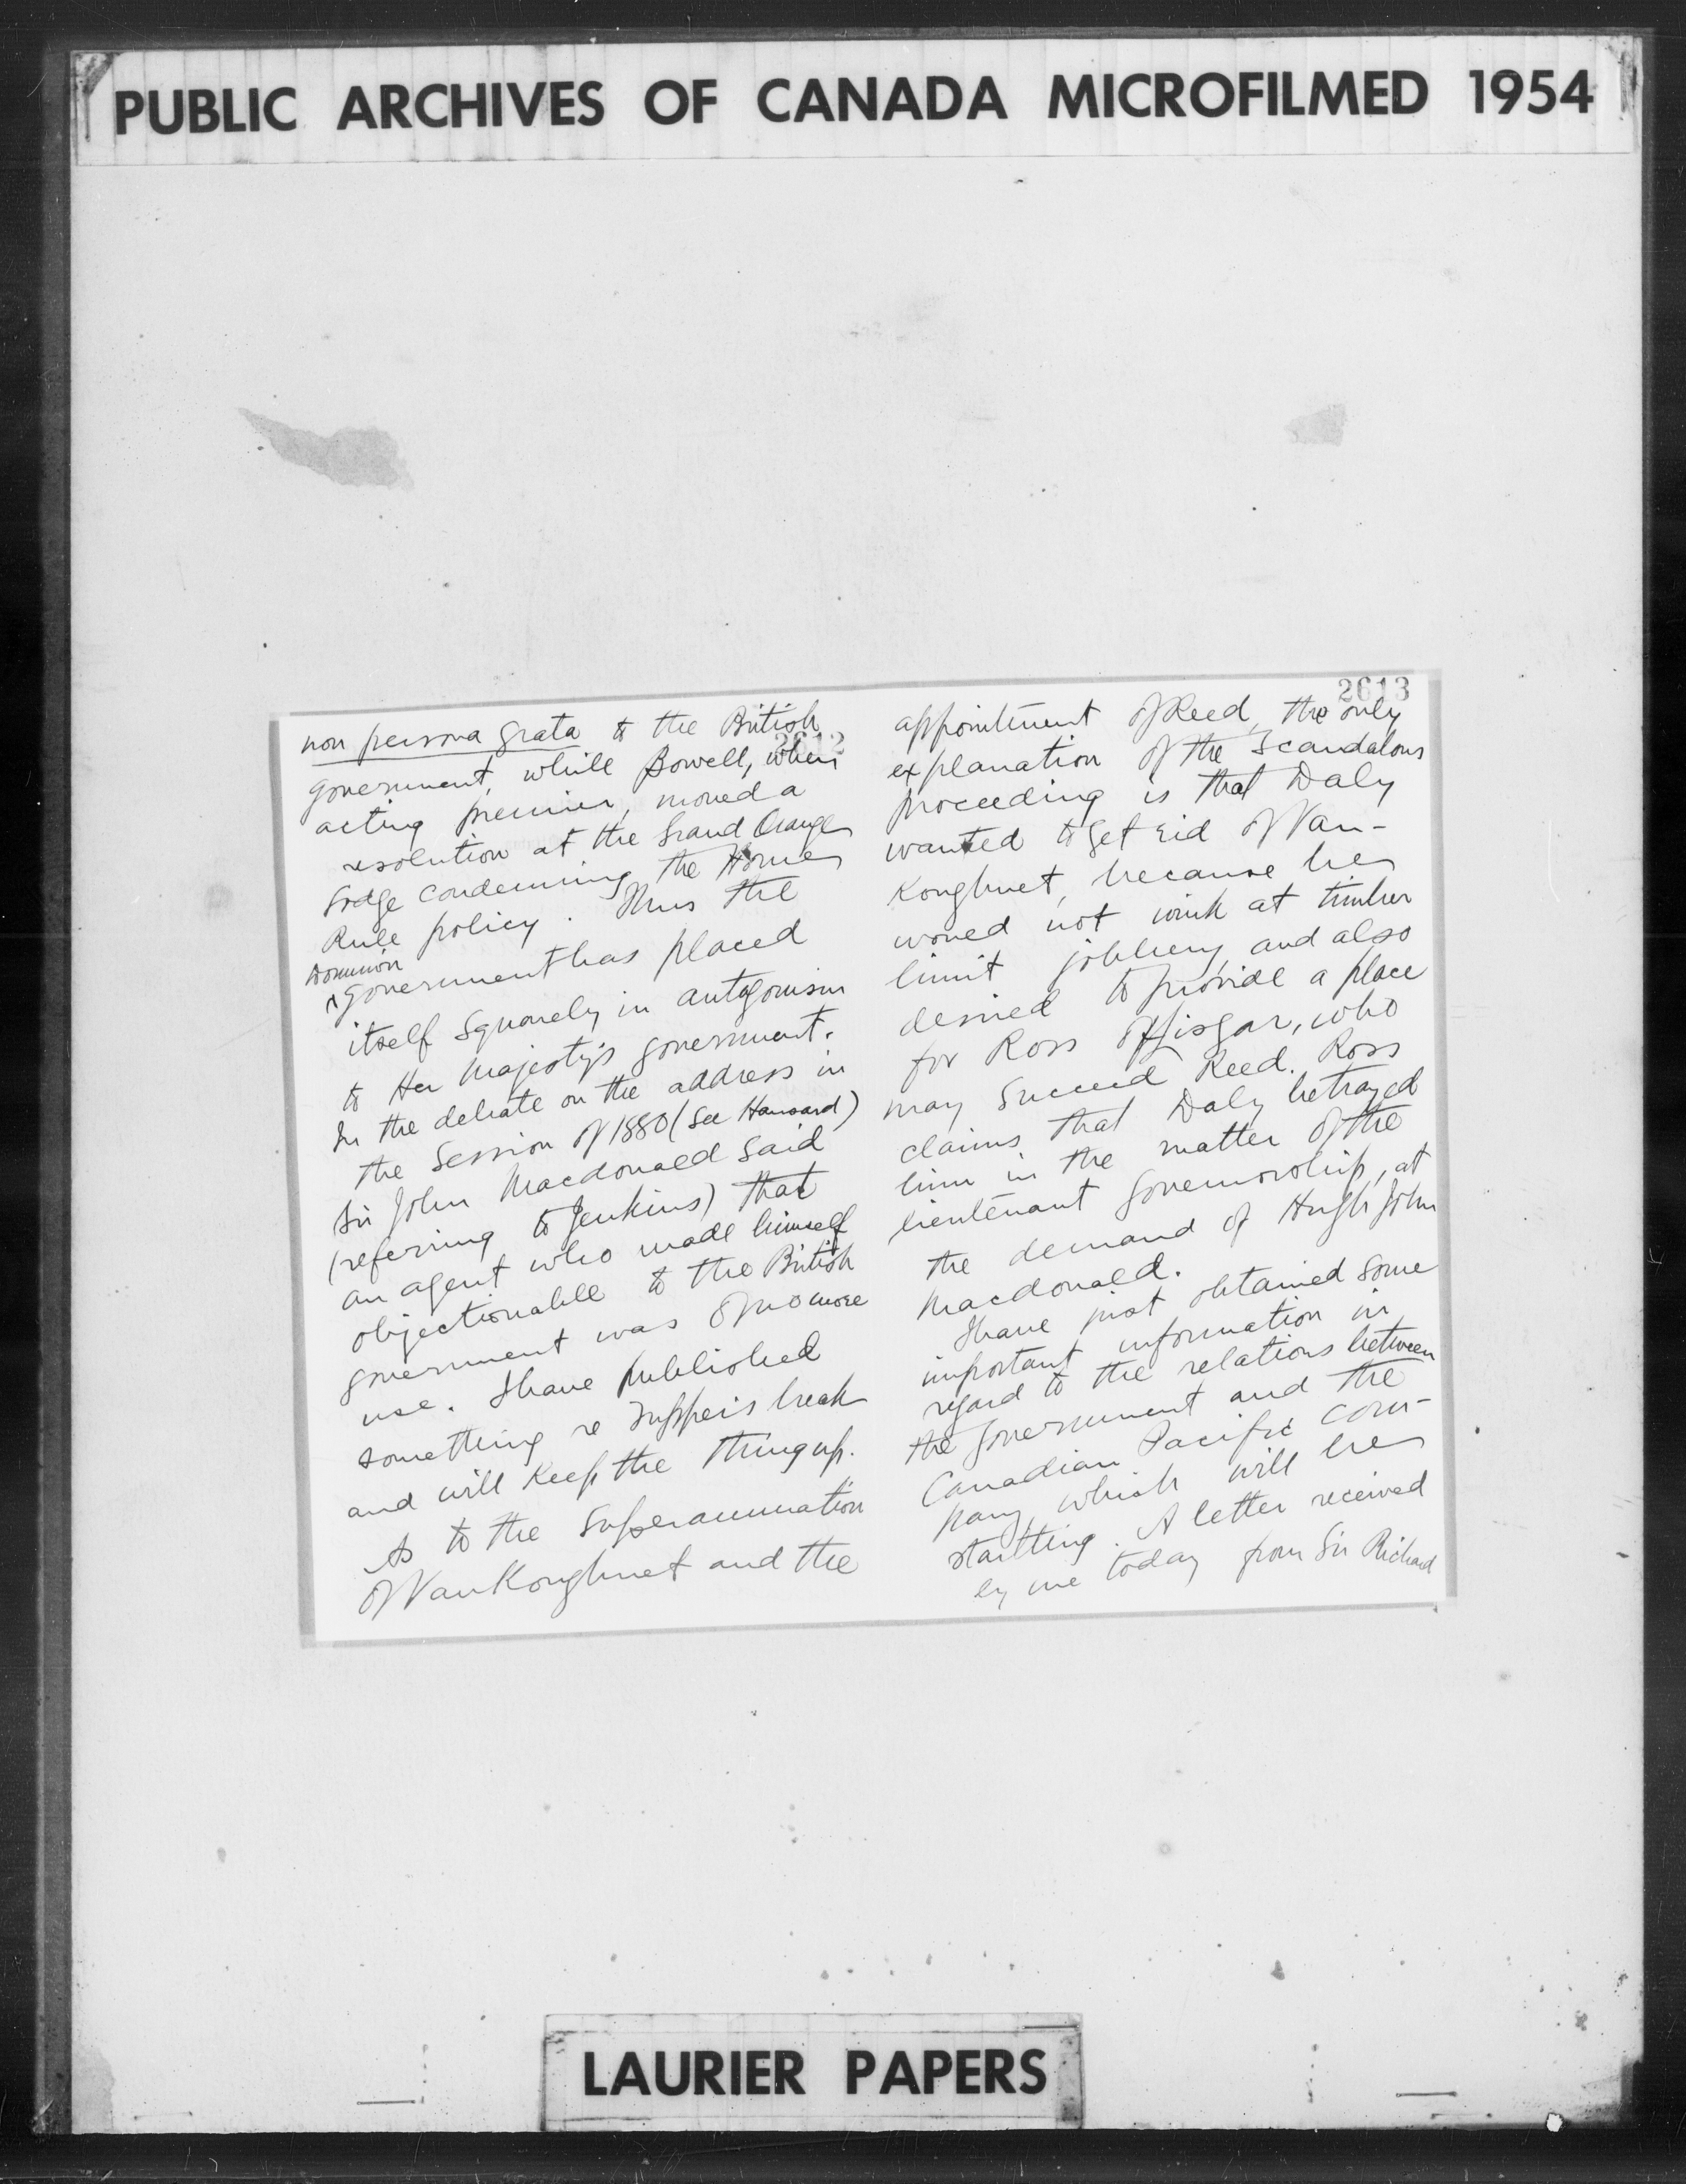 PUBLIC ARCHIVES OF CANADA MICROFILMED 1954
2612
non persona grata to the British
government, while Bowell, when
acting premier, moved a
resolution at the Grand Orange
Lodge condemning the Home
Rule policy. Thus the
Dominion
^ government has placed
itself squarely in antagonism
to Her Majesty's government.
In the debate on the address in
the session of 1880 (See Hansard)
Sir John Macdonald said
(referring to Jenkins) that
an agent who made himself
objectionable to the British
government was of no more
use. I have published
something re Tupper's break
and will keep the thing up.
As to the superannuation
of VanKoughnet and the
2613
appointment of Reed, the only
explanation of the scandalous
proceeding is that Daly
wanted to get rid of Van-
Koughnet, because he
would not wink at timber
limit jobbery, and also
desired to provide a place
for Ross of Lisgar, who
may succeed Reed. Ross
claims that Daly betrayed
him in the matter of the
lieutenant governorship, at
the demand of Hugh John
Macdonald.
I have just obtained some
important information in
regard to the relations between
the government and the
Canadian Pacific com-
pany which will be
startting. A letter received
by me today from Sir Richard
LAURIER PAPERS